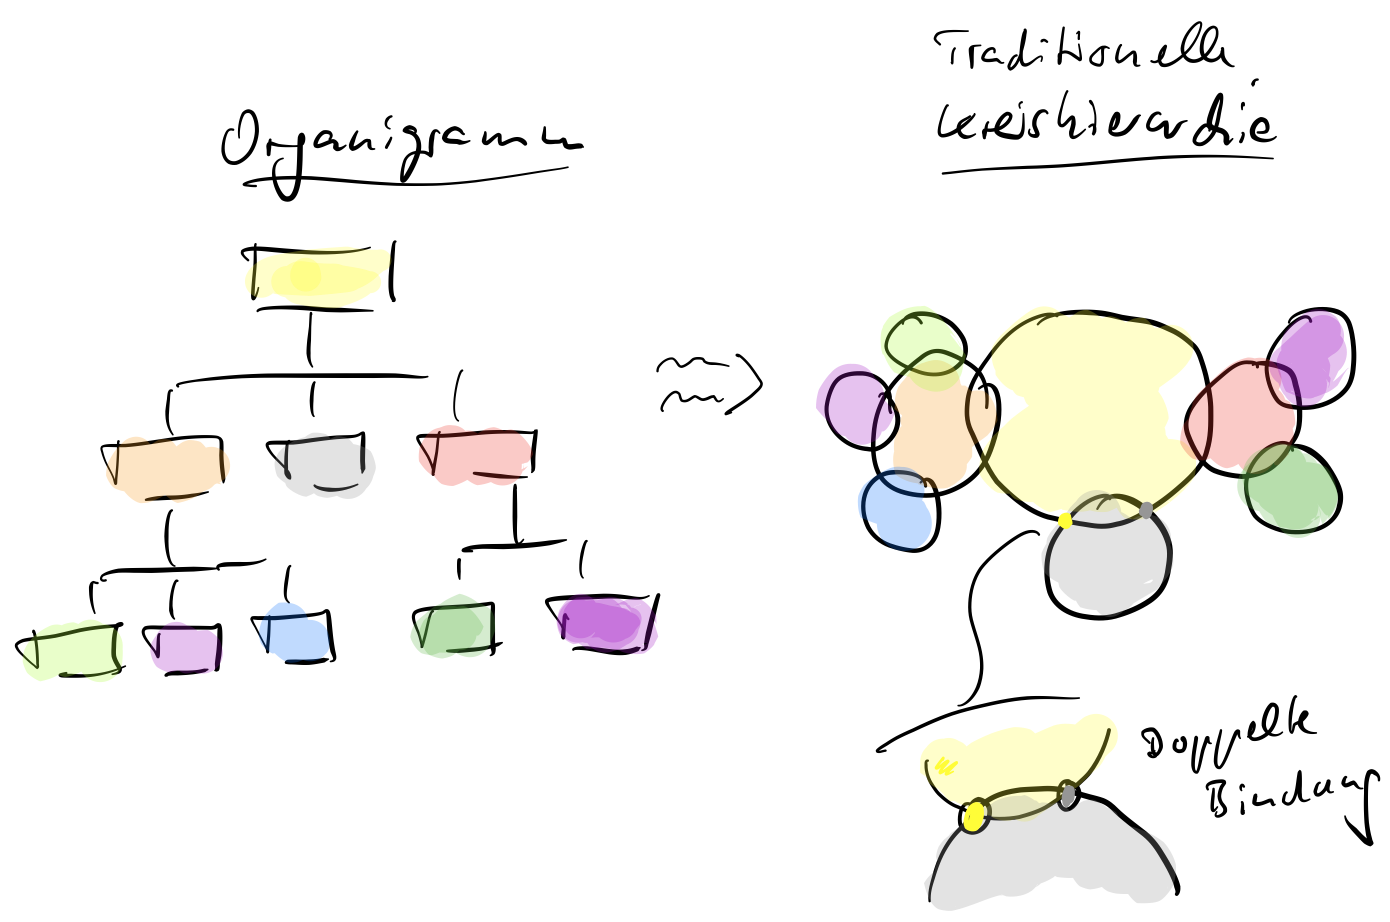 Organigramm
Traditionelle
Kreishierarchie
Doppelte
Bindung